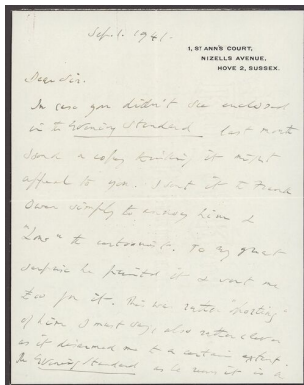 Sept. 1941.
1, ST ANN'S COURT,
NIZELLS AVENUE,
HOVE 2, SUSSEX.
Dear Sir.
In case you didn't see enclosed
in the Evening Standard last month
send a copy thinking it might
appeal to you. I sent it to Frank
Owen simply to annoy him &
"Low" the cartoonist. To my great
surprise he printed it & sent me
for it. This was rather "sporting"
of him I must say, also rather clever
as it disarmed me to a certain extent
the Evening Standard as he runs it is a